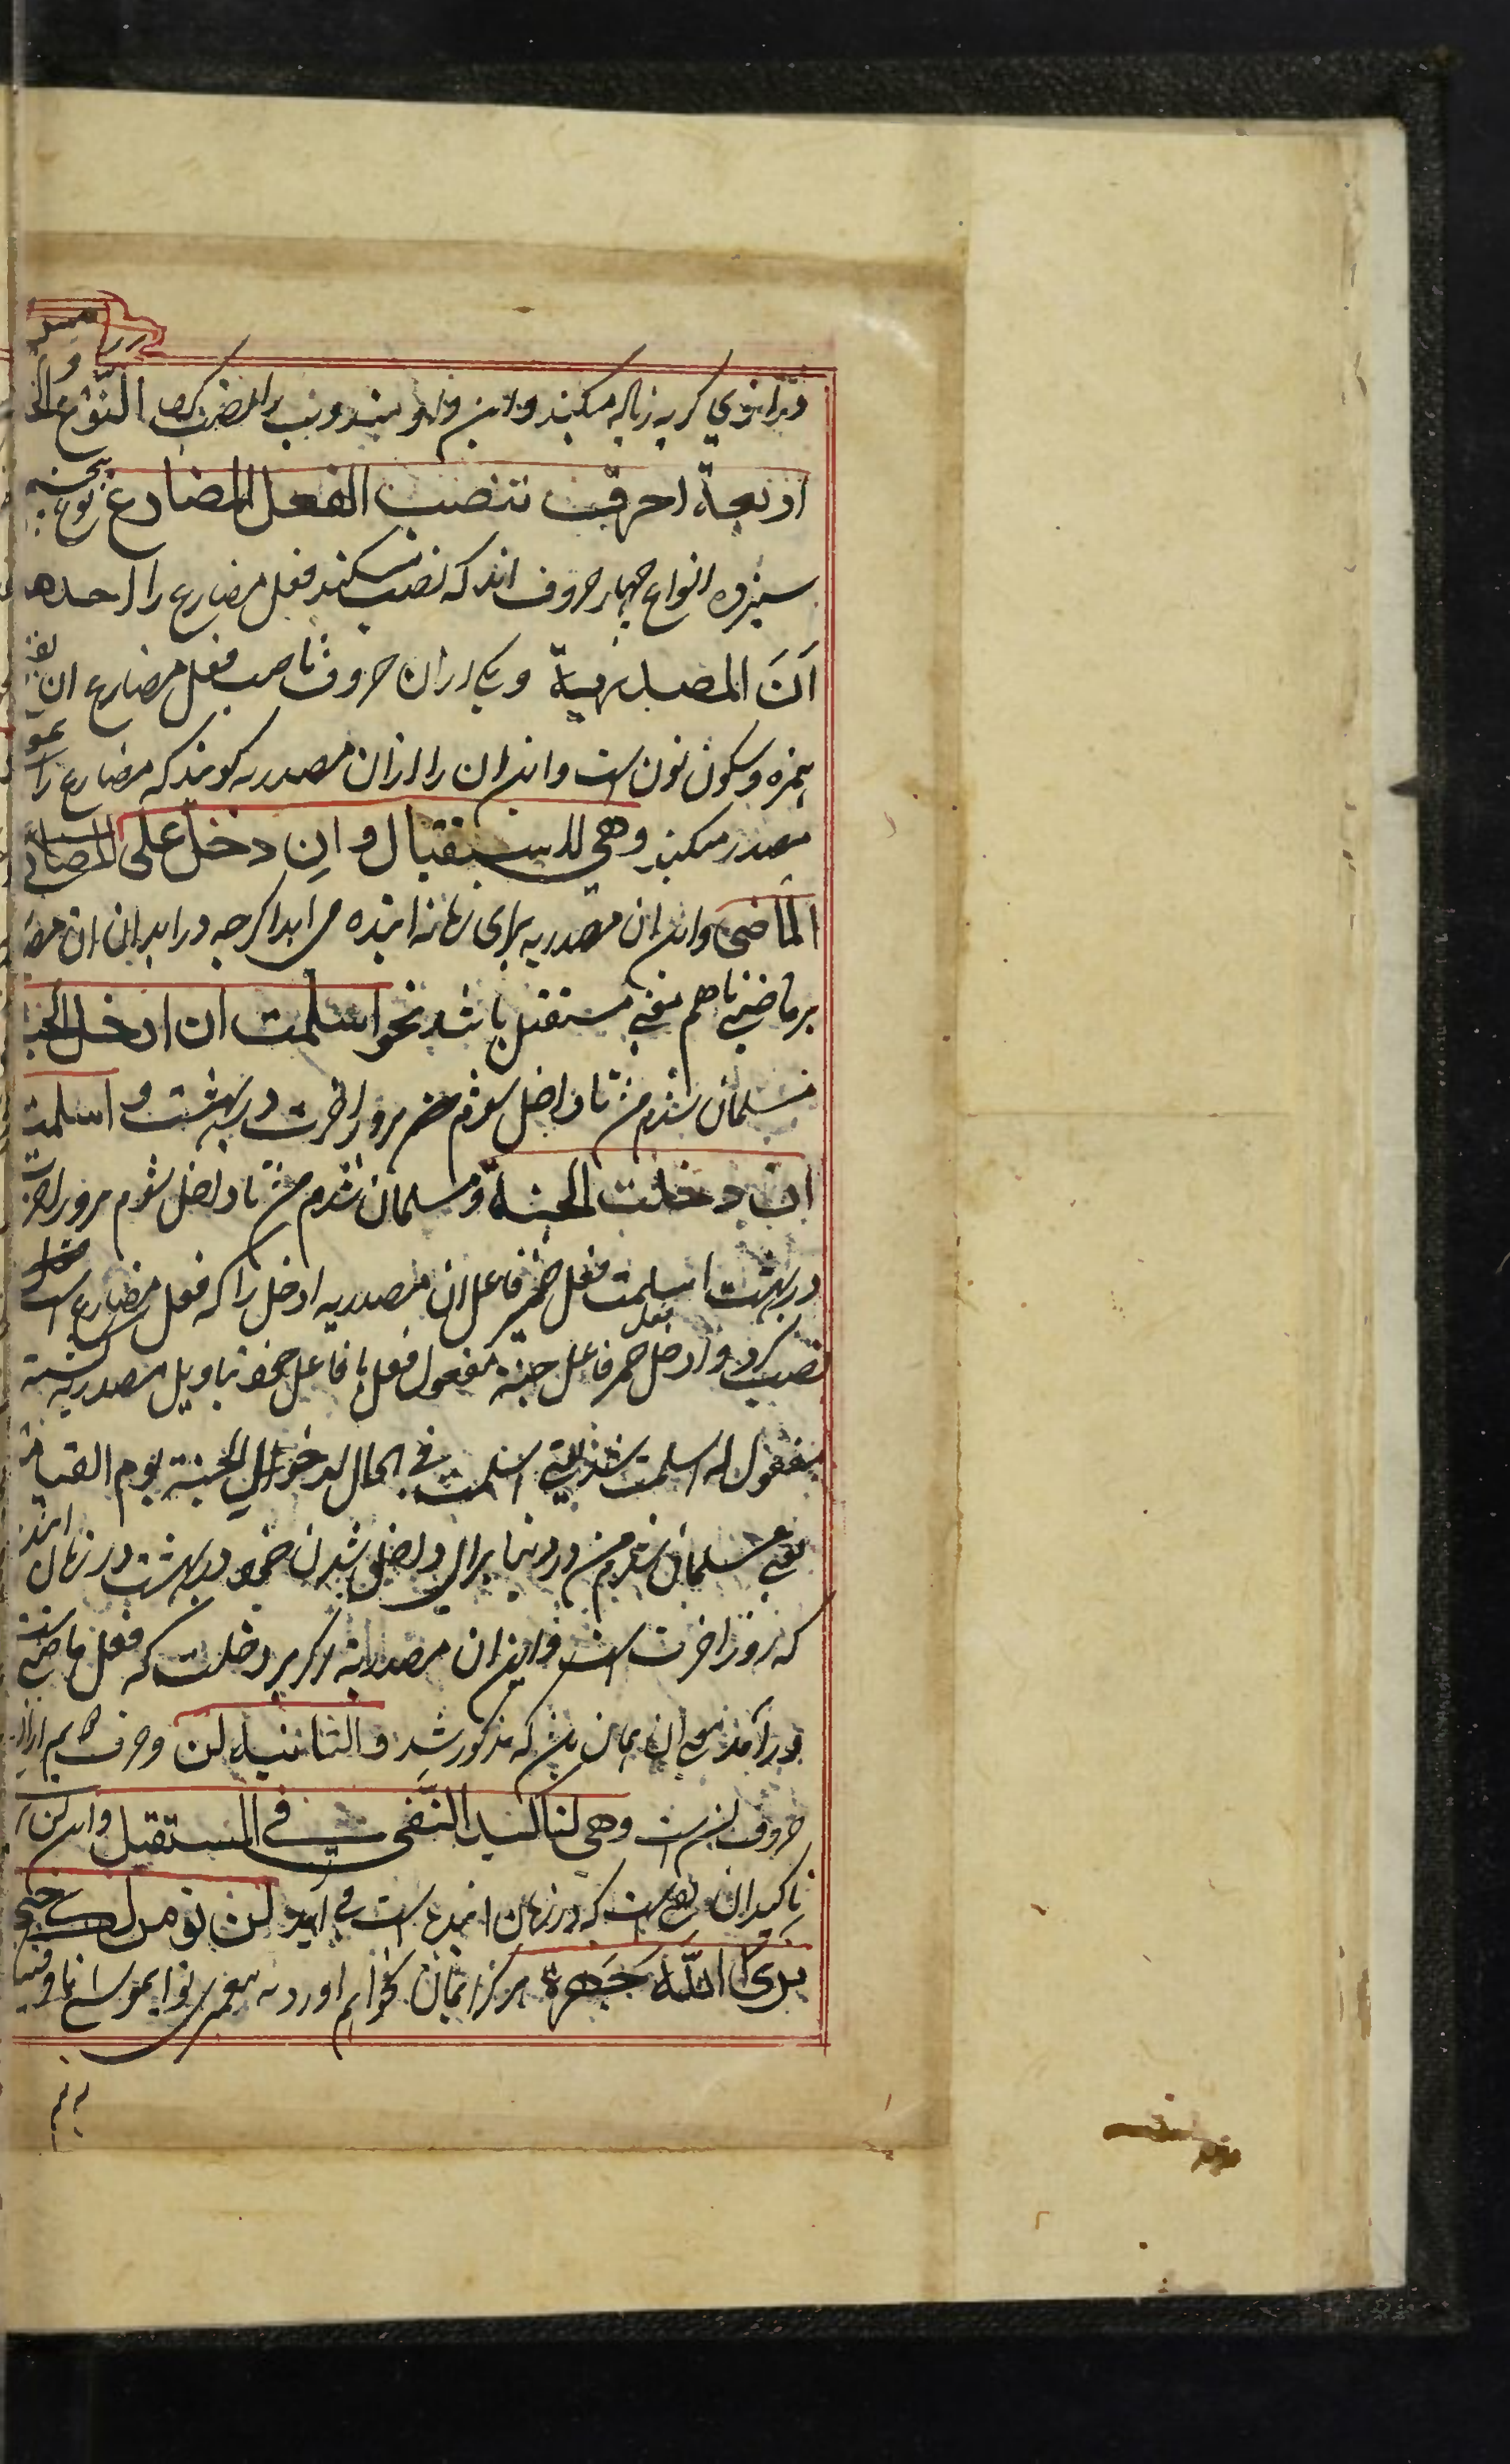 النوع الخامس
اربعة احرف تنصب الفعل المضارع نوع پنجم
سیزده انواع چهار حروف اند که نصب میکنند فعل مضارع را احدها
اَنَ المصدریة و یکی از ان حروف ناصب فعل مضارع ان
همزه و سکون نون است و این ان را ازان مصدریه کویند که مضارع را
مصدر میکند وهی للاستقبال وان دخل علی المضارع
الماضی و این ان مصدریه برای زمانه اینده می اید اکرچه در اید این ان
بر ماضی تا هم معنی مستقبل باشد نحو اسلمت ان ادخل الجنة
مسلمان شدم من تا داخل شوم من روز اخرت در بهشت و اسلمت
ان دخلت الجنة و مسلمان شدم من تا داخل شوم من روز اخرت
در بهشت اسلمت فعل ضمیر فاعل ان مصدریه ادخل را که فعل مضارع است
نصب کرد و ادخل فعل ضمیر فاعل جنة مفعول فعل با فاعل خود بتاویل مصدریه کشته
مفعول له اسلمت شد یعنی اسلمت فی الحال لدخولی الجنة یوم القیامة
یعنی مسلمان شدم من در دنیا برای داخل شدن خود در بهشت در زمان اینده
که روز اخرت است و این ان مصدریة اکر بر دخلت که فعل ماضی است
در آمد معنی ان همان من که مذکور شد والثانیة لن و حرف دویم ازان
حروف لن است وهی لتاکید النفی فی المستقبل و این لن
تاکید ان نفی است که در زمان اینده است می اید لن نومن لک حتی
نری الله جهرة هرکز ایمان نخواهیم اورد